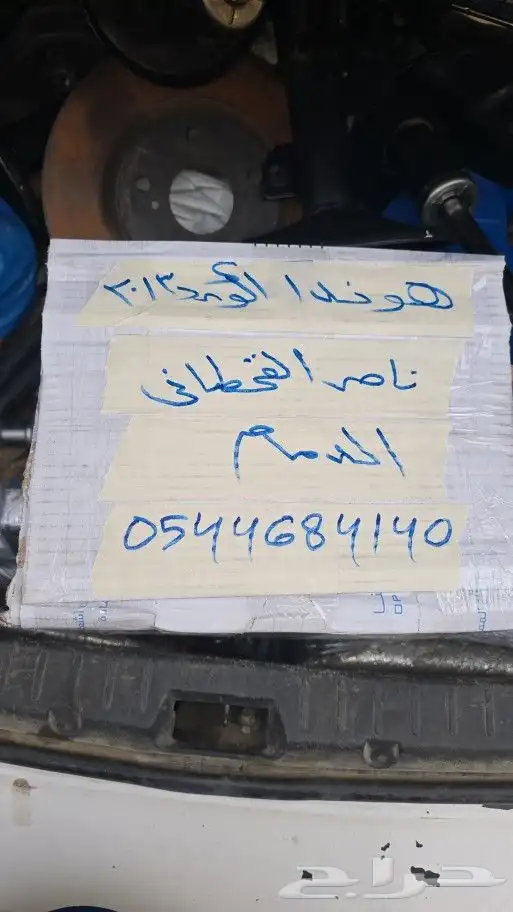 هوندا اكورد ٢٠١٣
ناصر القحطاني
الدمام
0544684140
حراج